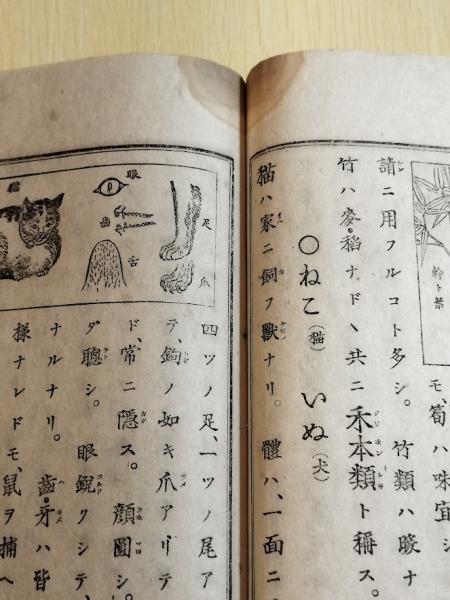 幹ト葉
モ、筍ハ味宜シ
請ニ用フルコト多シ。竹類ハ暖ナ
竹ハ麥・稻ナド、共ニ禾本類ト稱ス。
〇ねこ(猫) いぬ(犬)
猫ハ家ニ飼フ獸ナリ。體ハ、一面ニ
足
爪
眼
齒
舌
猫
四ツノ足、一ツノ尾ア
テ、鉤ノ如キ爪アリテ
ド、常ニ隱ス。顔圓シ。
ダ聰シ。眼鋭クシテ、
ナルナリ。齒・牙ハ皆
樣ナレドモ、鼠ヲ捕ヘ